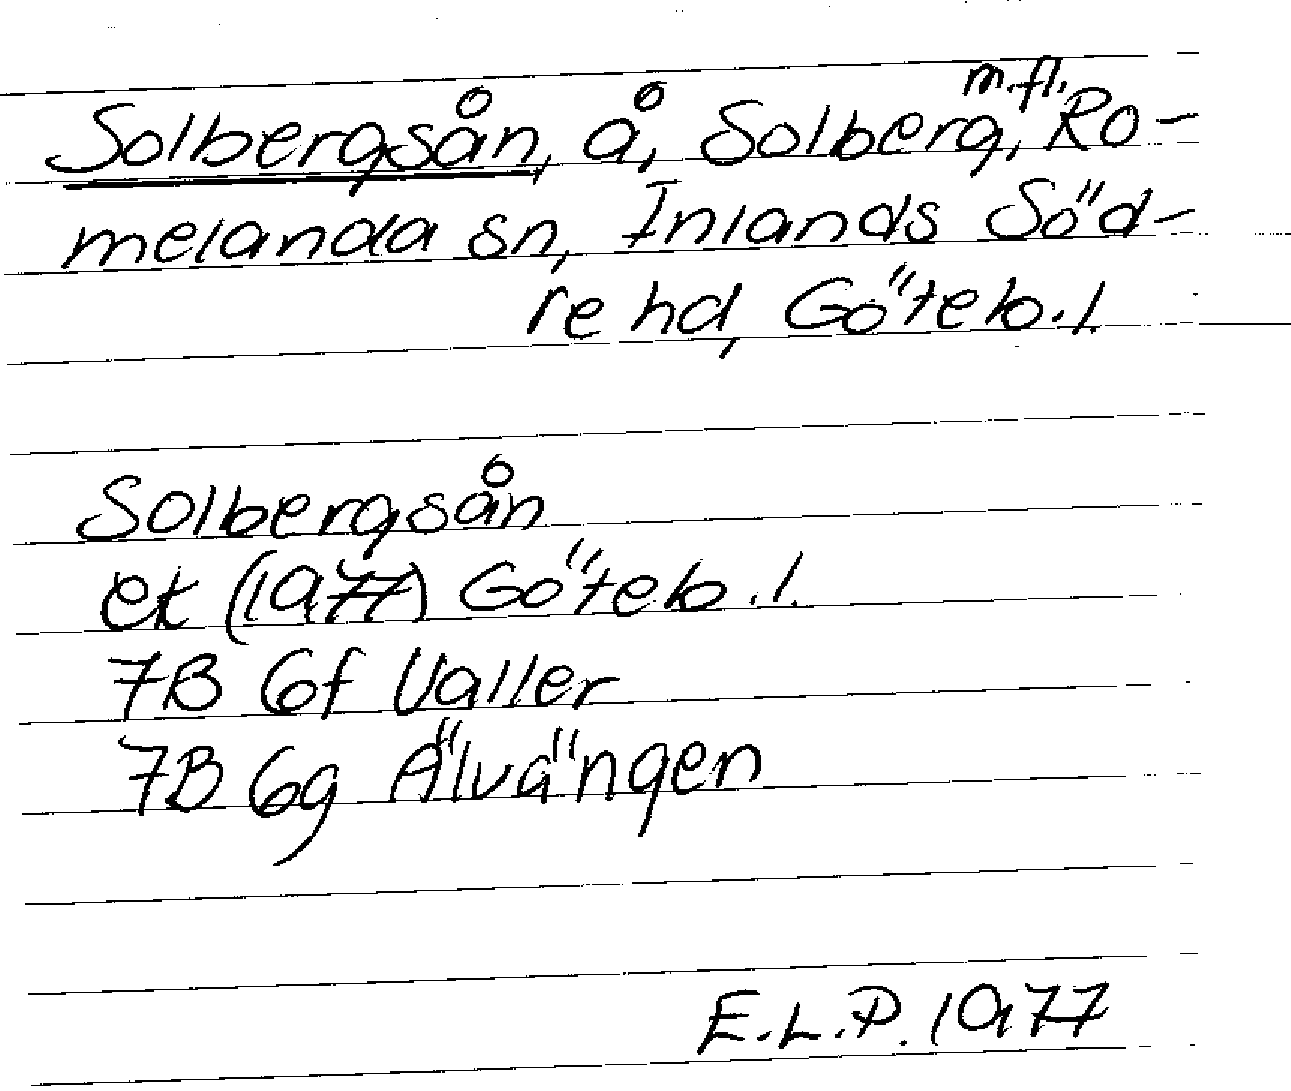 Solbergsån, å, Solberg, m.fl. Ro-
melanda sn, Inlands Söd-
re hd, Göteb. l.
Solbergsån
ek (1977) Göteb. l.
7B 6f Valler
7B 6g Älvängen
E.L.P. 1977